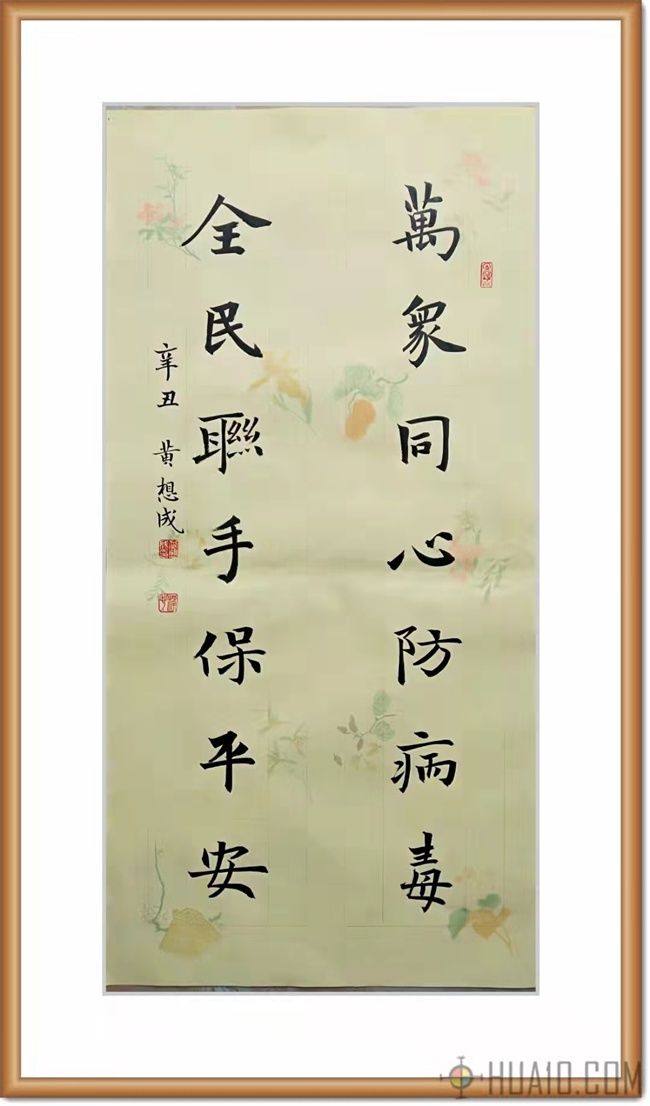 萬衆同心防病毒
全民聯手保平安
辛丑 黄想成
HUA10.COM